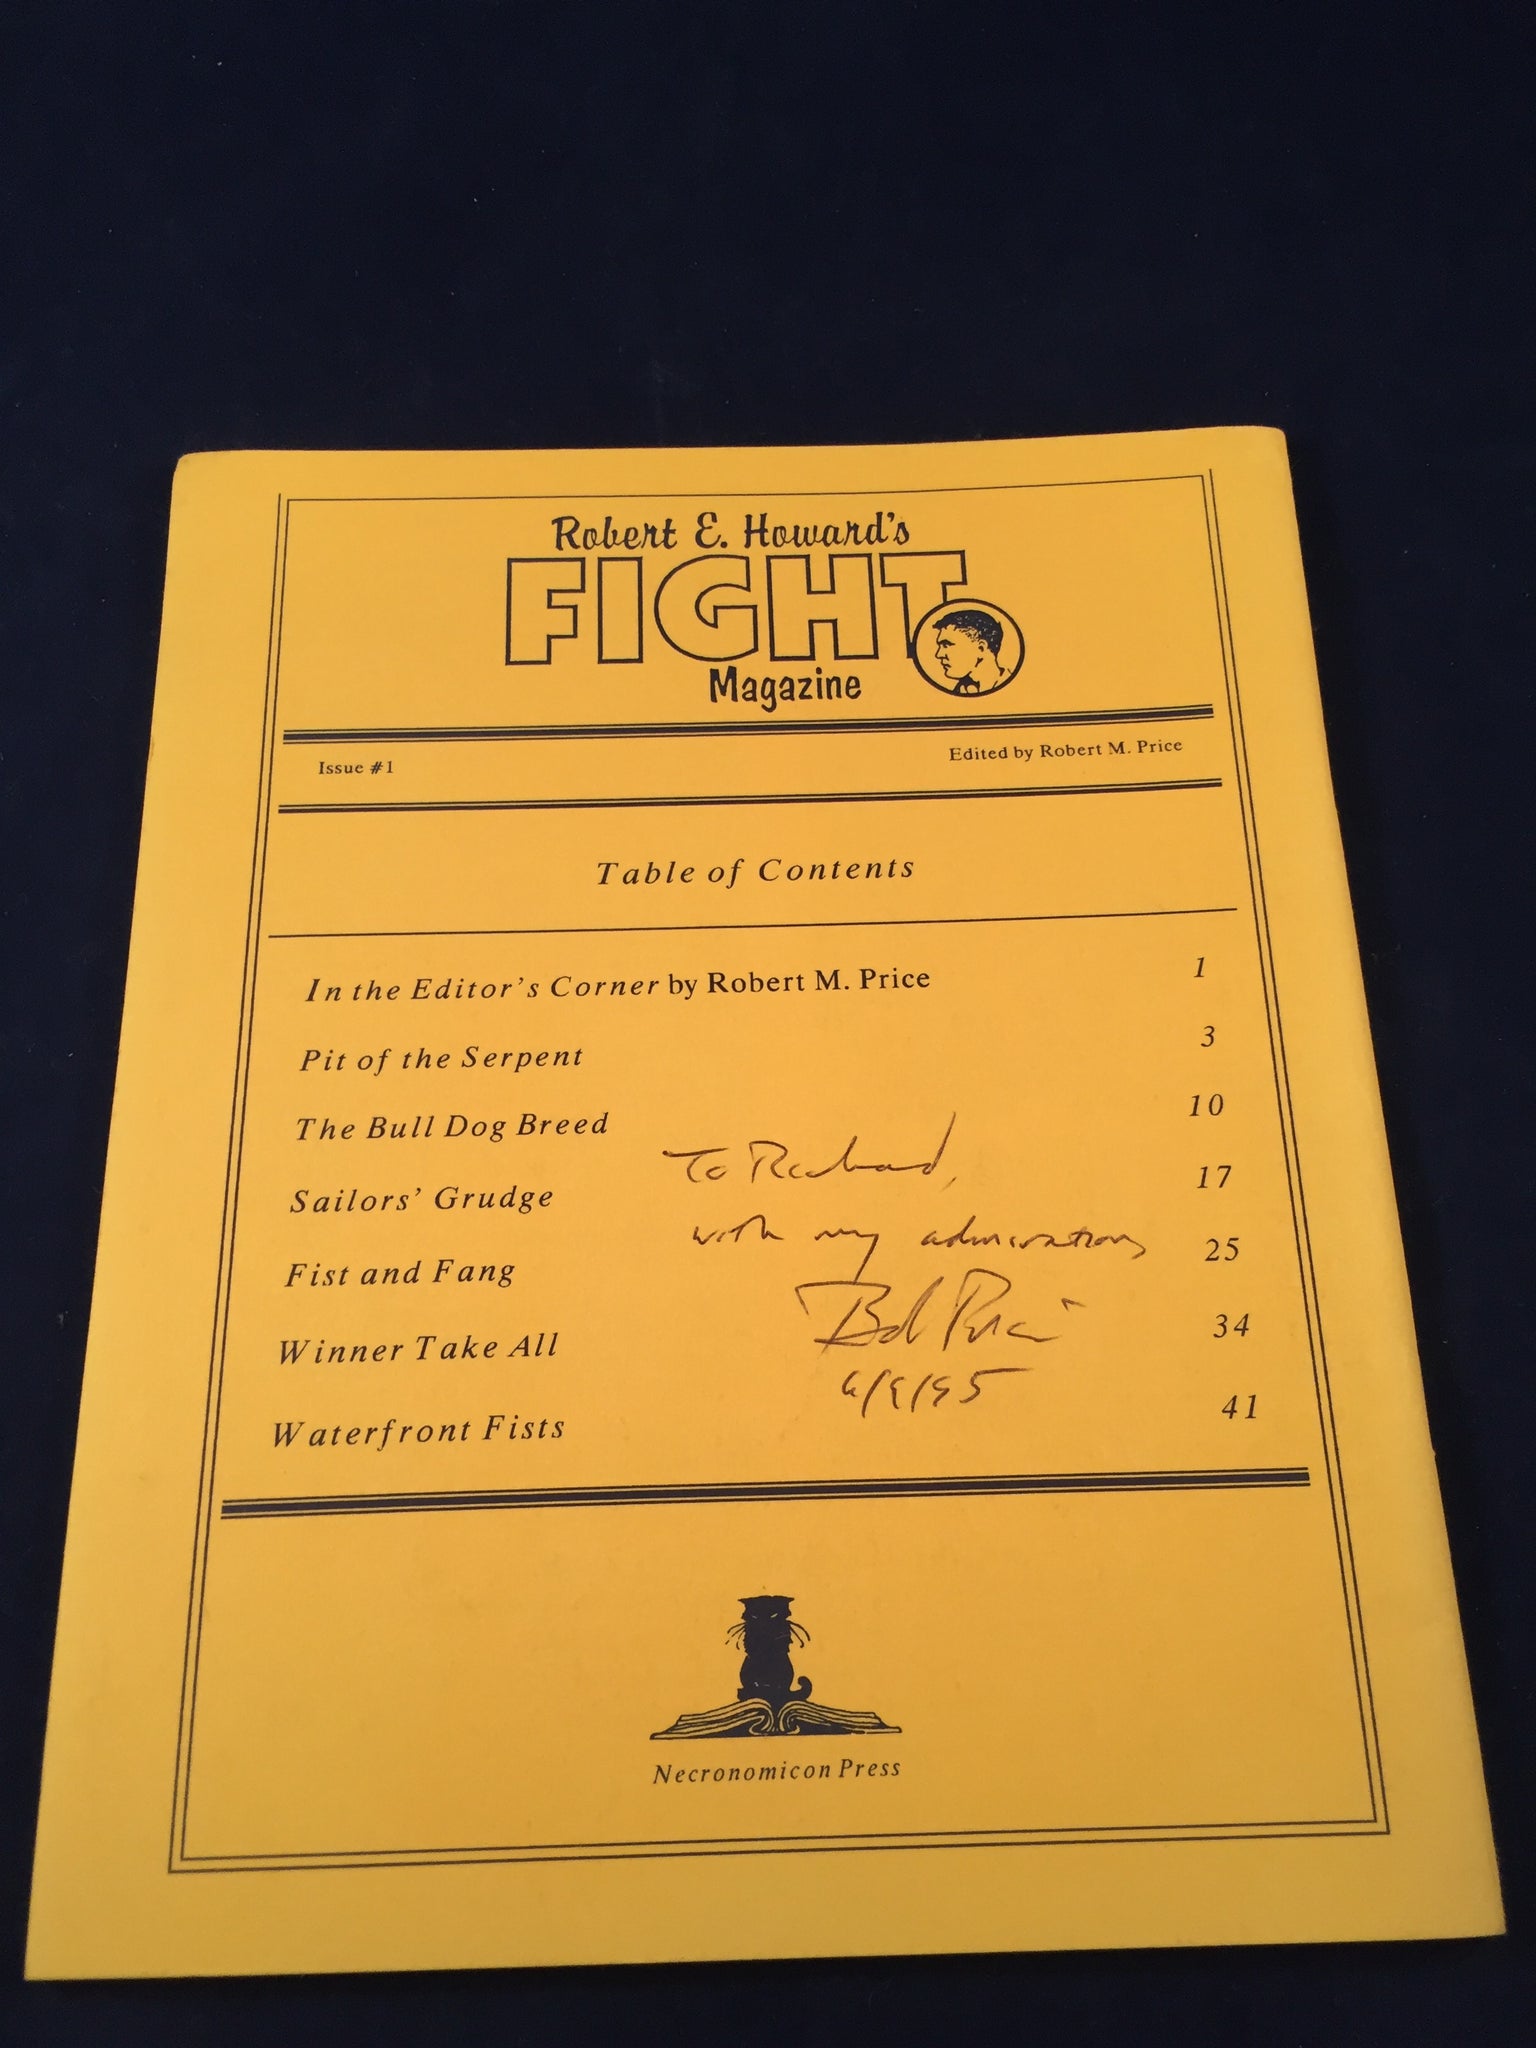 Robert E. Howard's
FIGHT
Magazine
Issue #1
Edited by Robert M. Price
Table of Contents
In the Editor's Corner by Robert M. Price 1
Pit of the Serpent 3
The Bull Dog Breed 10
Sailors' Grudge 17
Fist and Fang 25
Winner Take All 34
Waterfront Fists 41
To Richard,
with my admiration,
Bob Price
6/9/95
Necronomicon Press